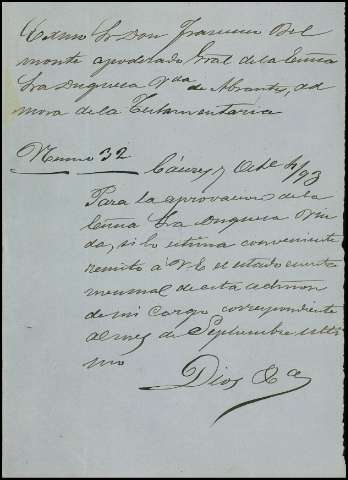 Exmo Sr Don Francisco Bel
monte apoderado Gral de la Exma
Sra Duquesa Vda de Abrantes, ad
mora de la Testamentaria
Numo 32 Cáceres 7 Obe 4/93
Para la aprovacion de la
Exma Sra Duquesa Viu
da, si lo estima conveniente
remito á V.E. el estado cuenta
mensual de esta admon
de mi cargo correspondiente
al mes de Septiembre ulti
mo
Dios &a